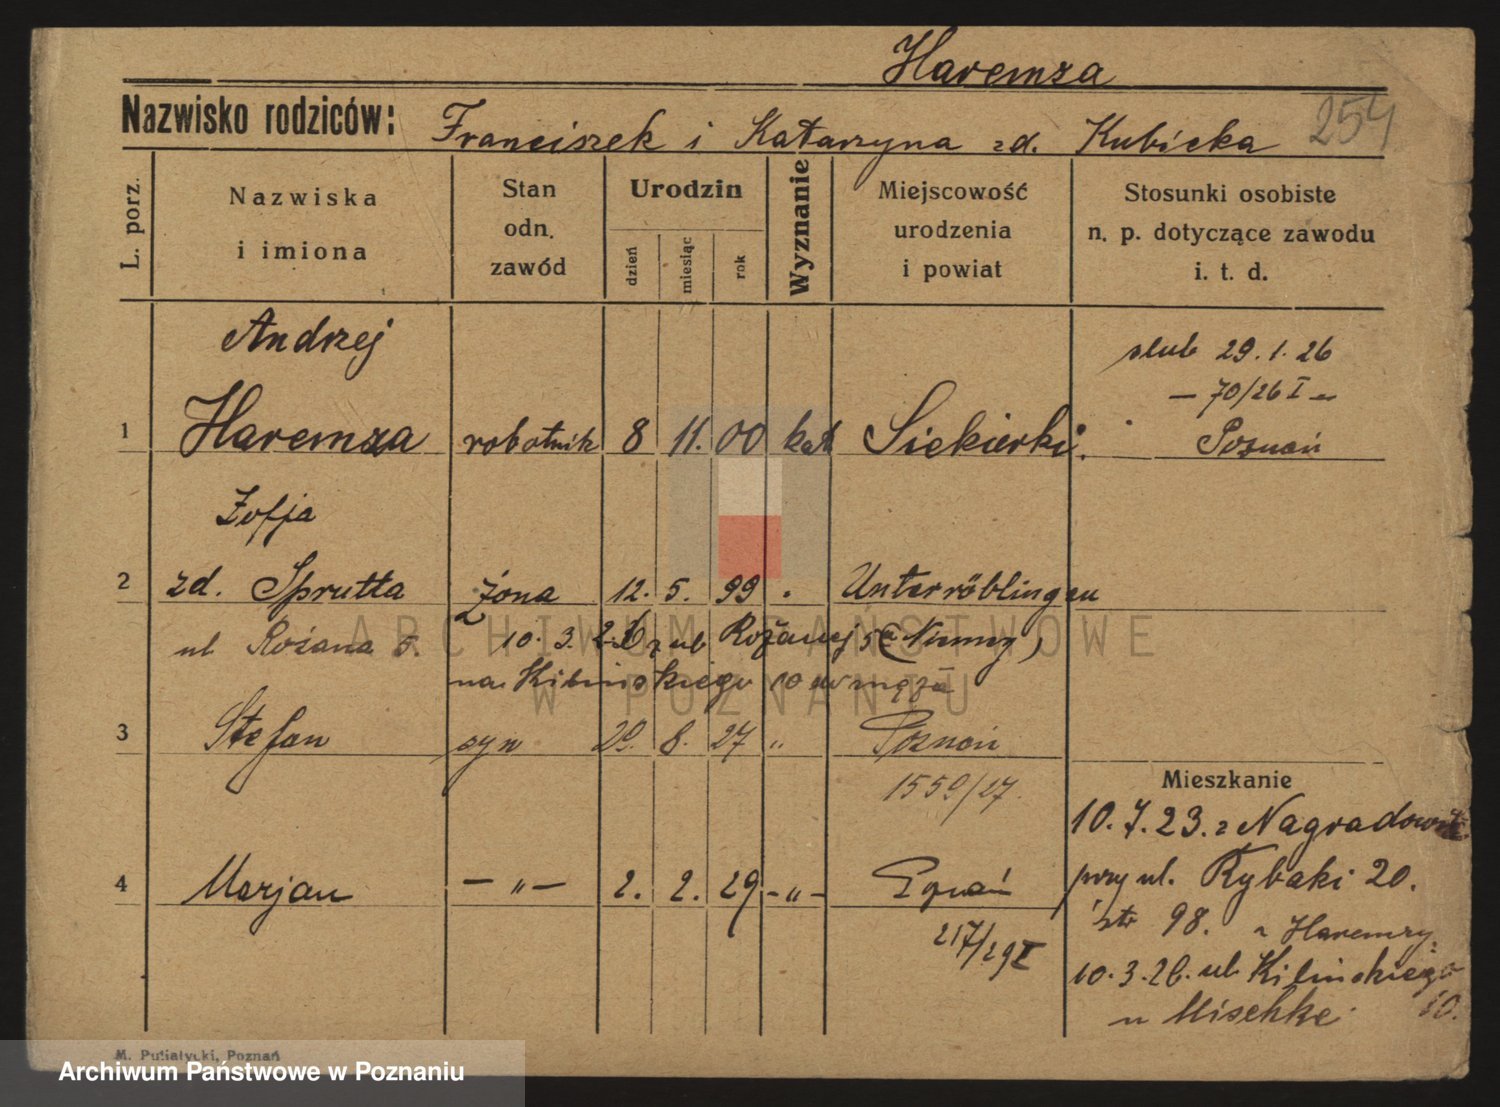 Haremza
Nazwisko rodziców: Franciszek i Katarzyna zd. Kubicka 254
L. porz.
Nazwiska
i imiona
Stan
odn.
zawód
Urodzin
dzień
miesiąc
rok
Wyznanie
Miejscowość
urodzenia
i powiat
Stosunki osobiste
n. p. dotyczące zawodu
i. t. d.
Andrzej
1 Haremza robotnik 8 11. 00 kat Siekierki
ślub 29.1.26
— 70/26 I —
Poznań
Zofja
2 zd. Sprutta żona 12. 5. 99 Unterröblingen
ul Rożana 5. 10.3.26 z ul Rożanej 5 (Niemcy)
na Kilińskiego 10 do męża
3 Stefan syn 20. 8. 27 " Poznań
1559/27.
Mieszkanie
10.7.23. z Nagradowic
przy ul. Rybaki 20.
str 98. u Haremzy
10.3.26. ul. Kilińskiego
10.
u Mischke
4 Marjan — " — 2. 2. 29 — " — Poznań
217/29 I
M. Putiatycki, Poznań
ARCHIWUM PAŃSTWOWE
W POZNANIU
Archiwum Państwowe w Poznaniu